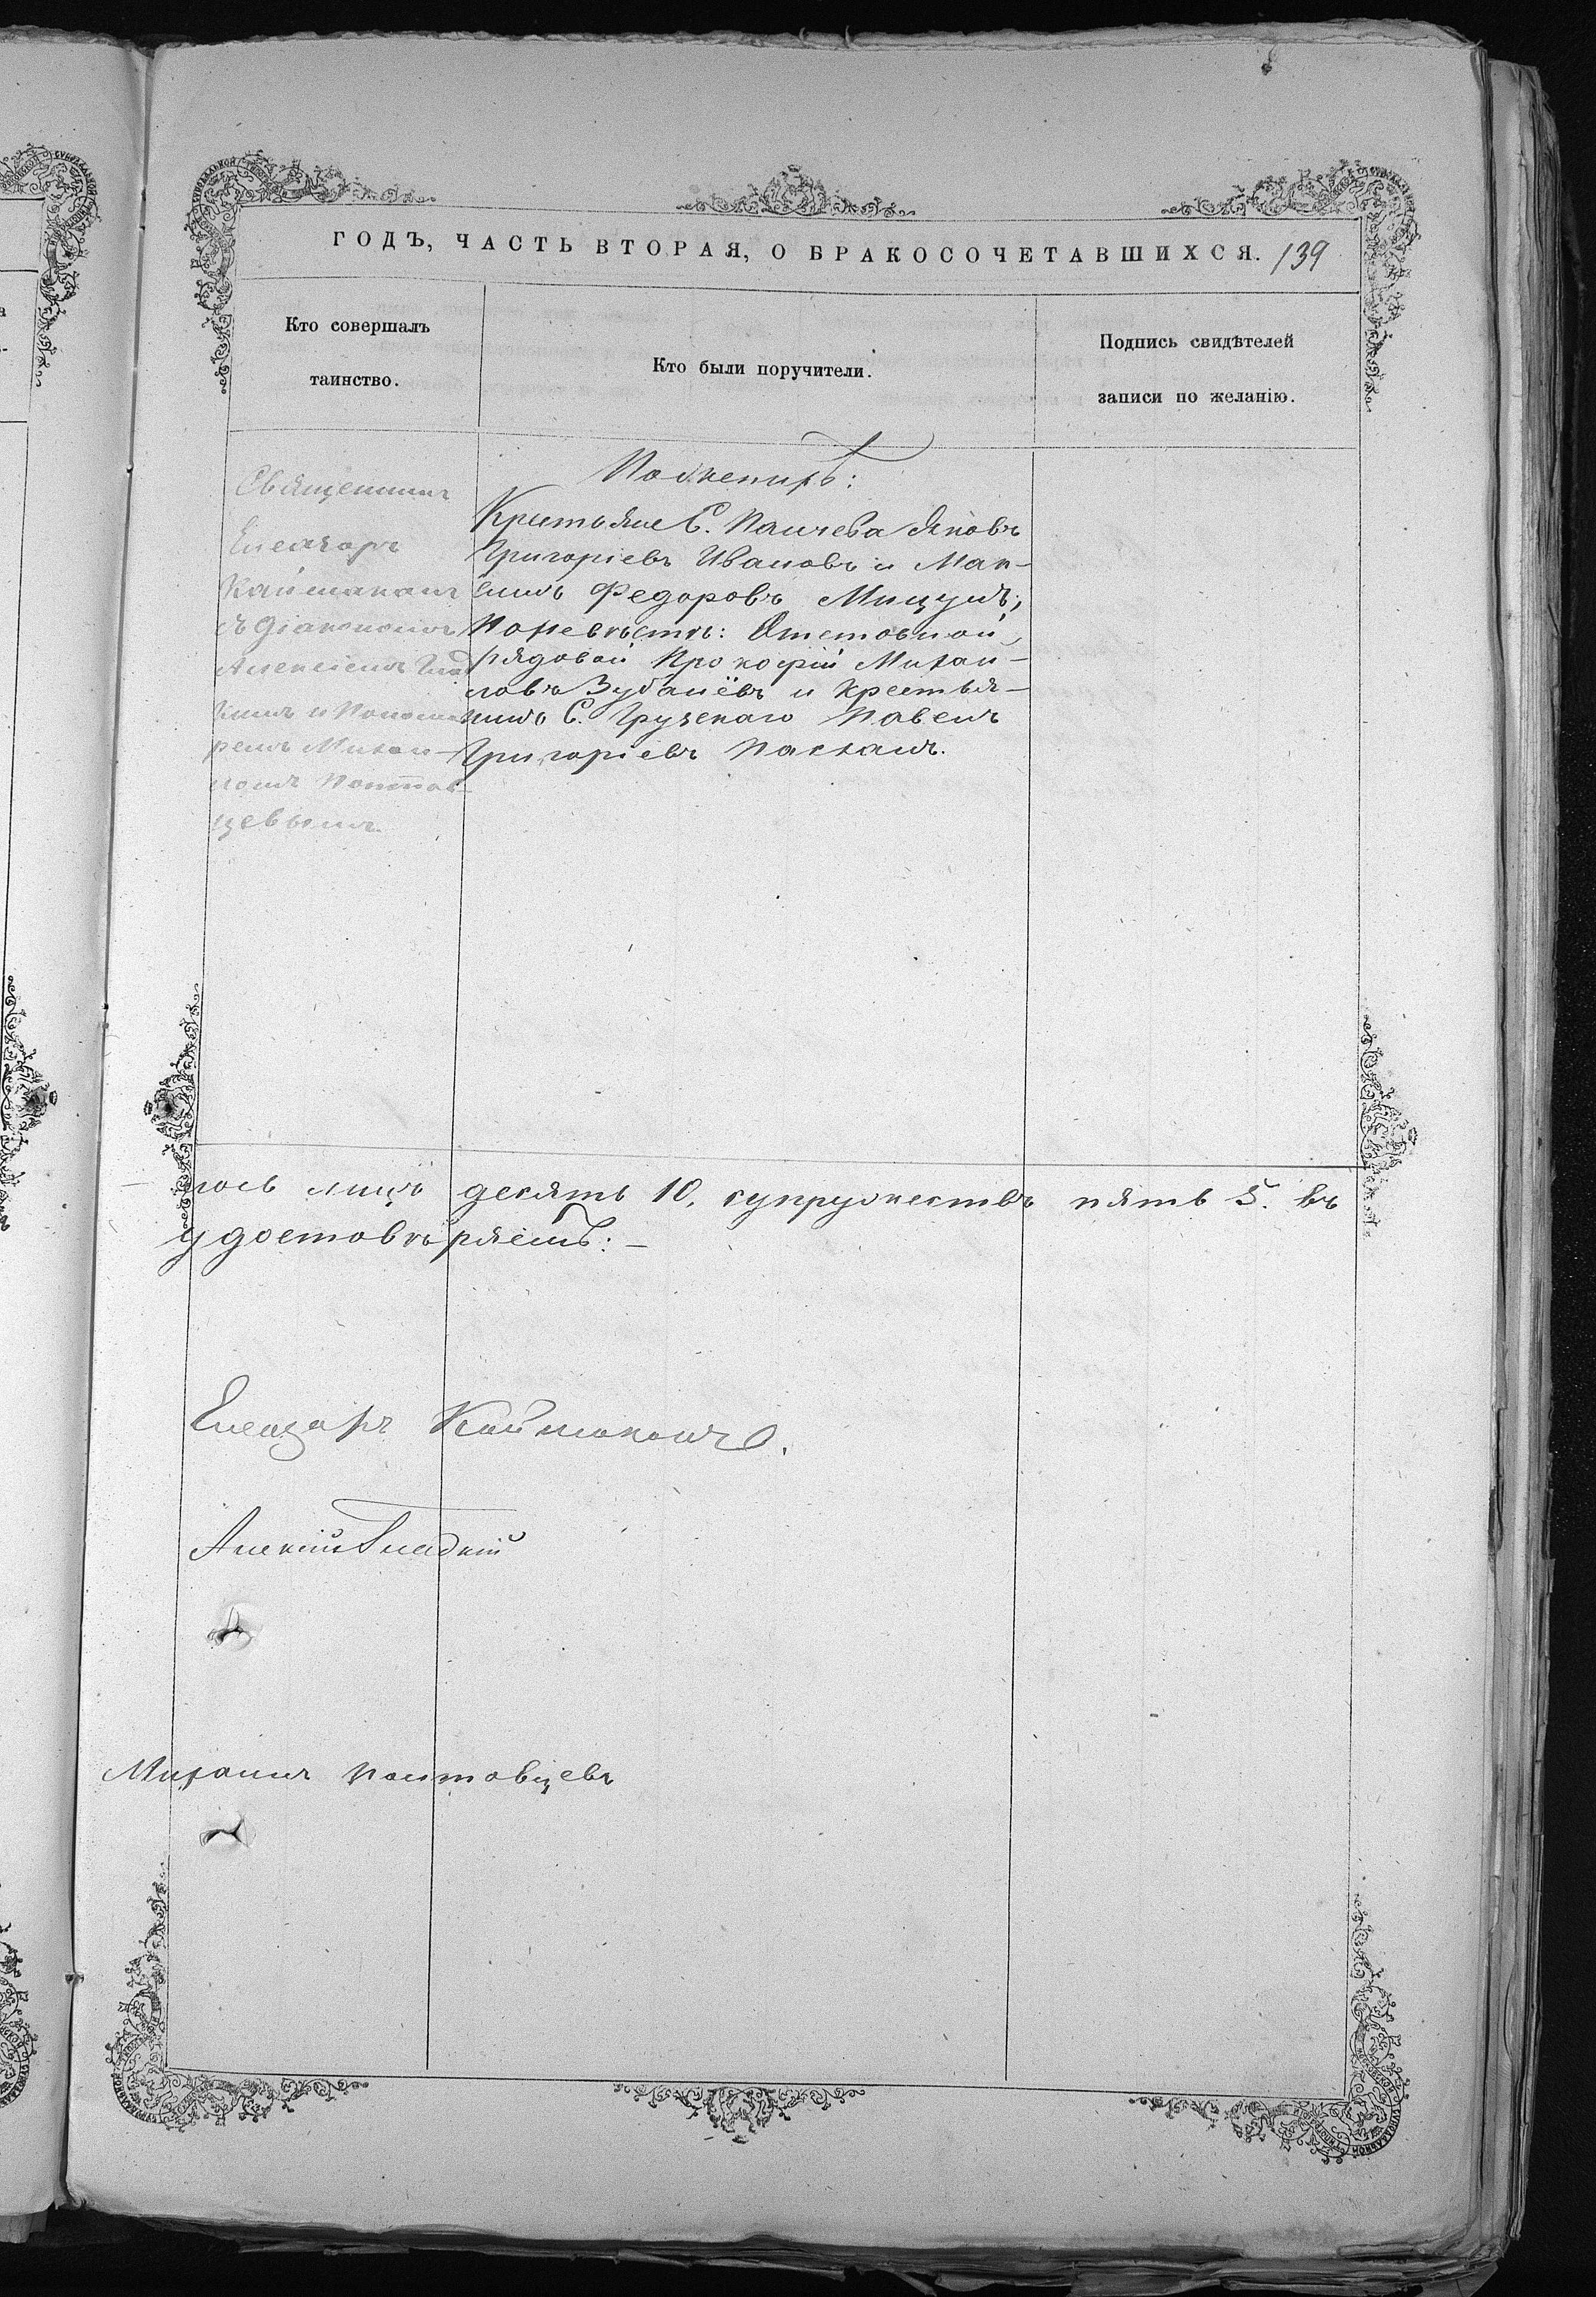 ГОДЪ, ЧАСТЬ ВТОРАЯ, О БРАКОСОЧЕТАВШИХСЯ. 139
Кто совершалъ
таинство.
Кто были поручители.
Подпись свидѣтелей
записи по желанію.
Священник
Елеазаръ
Кайманкан
съ Діакономъ
Алексіемъ Глад
кимъ и Понома
ремъ Михаи-
ломъ Полтов-
цевымъ.
По женихѣ:
Крестьяне С. Палчева Яковъ
Григоріевъ Ивановъ и Мак-
симъ Федоровъ Мицулъ;
По невѣстѣ: Отставной
рядовой Прокофій Михай-
ловъ Зубанёвъ и крестья-
нинъ С. Грузскаго Павелъ
Григоріевъ Пасхалъ.
лось лицъ десять 10, супружествъ пять 5. въ
удостовѣряетъ: —
Елеазаръ
Алексій Гладкій
Михаилъ Полтовцевъ